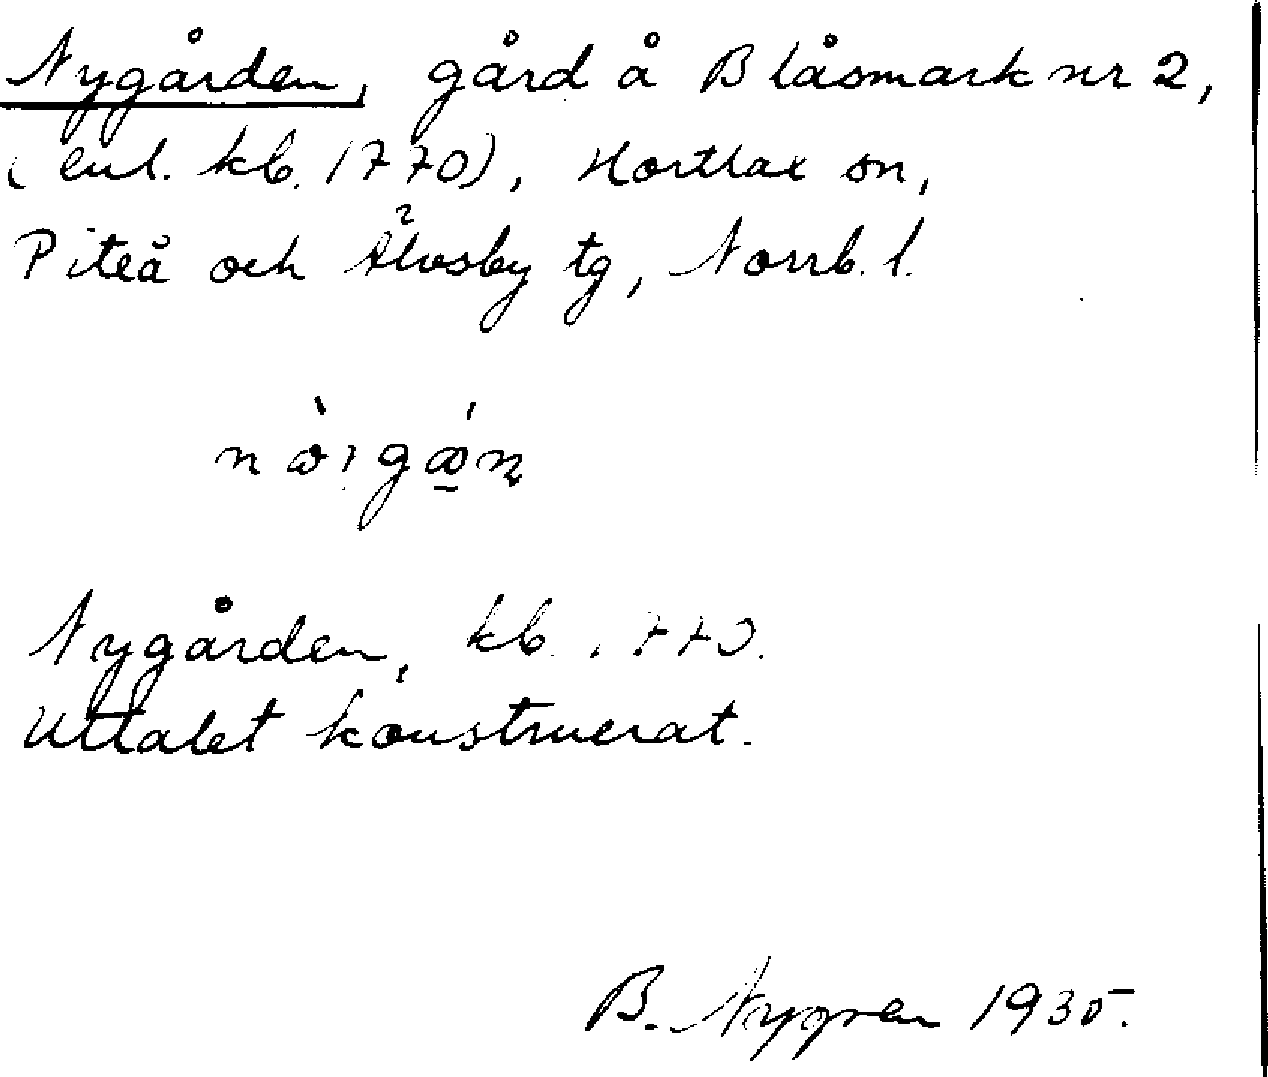 Nygården, gård å Blåsmark nr 2,
(enl. kb. 1770), Hortlax sn,
Piteå och Älvsby tg, Norrb. l.
Nygården, kb. 1770.
Uttalet konstruerat.
B. Nygren 1935.